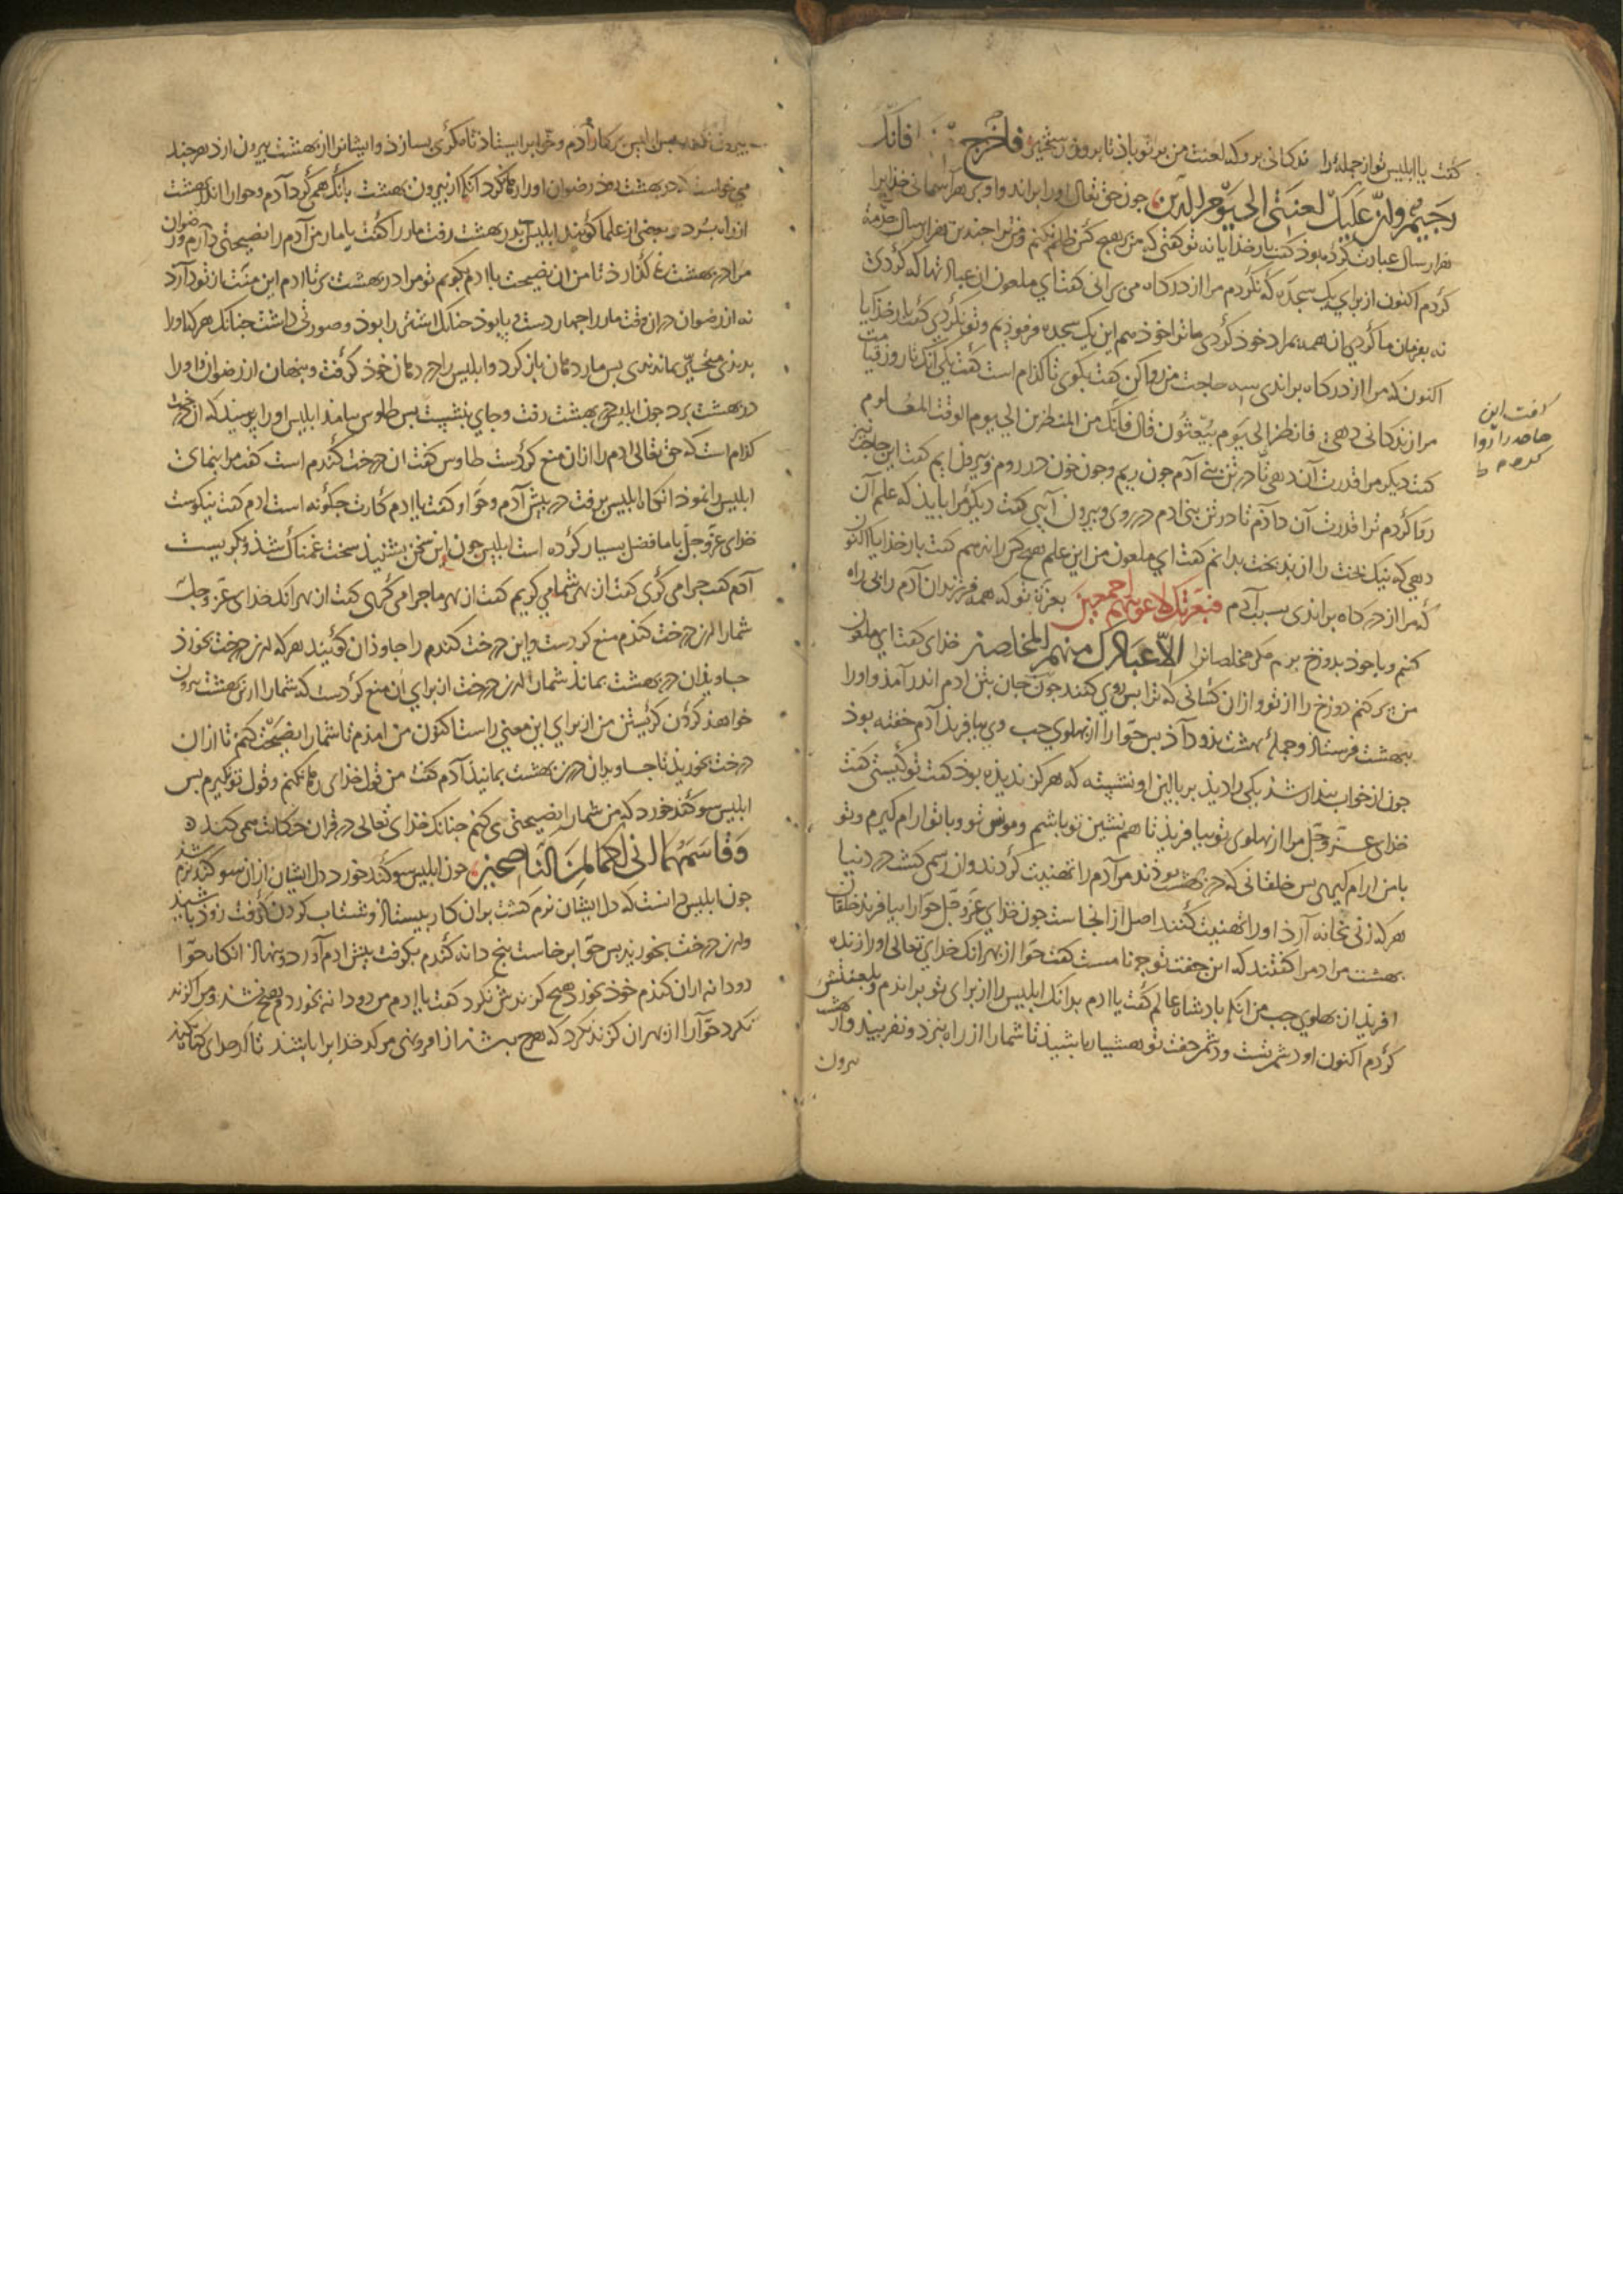 گفت یا ابلیس تو از جمله را ندکانی برو که لعنت من بر تو باذ تا بروز رستخیز فاخرج فانک
رجیم وان علیک لعنتی الی یوم الدین جون حق تعالی اورا براند واو بر هر آسمانی خذایرا
هزار سال عبادت کرده بوذ گفت بار خذایا نه تو گفتی که من بر هیچ کس ظلم نکنم ومن ترا جندین هزار سال خدمة
کردم اکنون از برای یک سجده که نکردم مرا از درکاه می برانی گفت ای ملعون ان عبادتها که کردی
نه بفرمان ما کردی ان همه بمراد خوذ کردی ما ترا خوذ همین یک سجده فرموذیم وتو نکردی گفت بار خذایا
اکنون که مرا از درکاه براندی سه حاجت من روا کن گفت بکوی تا کذام است گفت یکی آنک تا روز قیامت
مرا زندکانی دهی فانظرنی الی یوم یبعثون قال فانک من المنظرین الی یوم الوقت المعلوم
گفت دیکر مرا قدرت آن دهی تا در تن بنی آدم جون ریم وجون خون در روم وبیرون ایم گفت این حاجت نیز
روا کردم ترا قدرت آن داذم تا در تن بنی ادم در روی وبیرون آیی گفت دیکر مرا بایذ که علم آن
دهی که نیک بخت را از بد بخت بدانم گفت ای ملعون من این علم هیچ کس را ندهم گفت بار خذایا اکنون
که مرا از درکاه براندی بسبب آدم فبعزتک لاغوینهم اجمعین بعزة تو که همه فرزندان آدم را بی راه
کنم وبا خوذ بدوزخ برم مکر مخلصانرا الا عبادک منهم المخلصین خذای گفت ای ملعون
من پر کنم دوزخ را از تو واز ان کسانی که ترا بس روی کنند جون جان بتن ادم اندر آمذ واورا
ببهشت فرستاذ وجملهٔ بهشت بذو داذ بس حوّا را از بهلوی جب وی بیافریذ آدم خفته بوذ
جون از خواب بیدار شذ یکی را دیذ بر بالین او نشسته که هرکز ندیذه بوذ گفت تو کیستی گفت
خذای عز وجل مرا از بهلوی تو بیافریذ تا هم نشین تو باشم ومونس تو وبا تو ارام کیرم وتو
با من ارام کیری بس خلقانی که در بهشت بوذند مر آدم را تهنیت کردند وان رسم کشت در دنیا
هر که زنی بخانه آرذ اورا تهنیت کنند اصل از انجاست جون خذای عز وجل حوّا را بیافریذ خلقان
بهشت مر ادم را گفتند که این جفت تو جه نامست گفت حوّا از بهر آنک خذای تعالی اورا زنده
افریذ از بهلوی جب من انکه باذشاه عالم گفت یا ادم بدانک ابلیس را از برای تو براندم وبلعنتش
کردم اکنون او دشمن تست ودشمن جفت تو هشیار باشیذ تا شمارا از راه نبرد ونفریبد واز بهشت
بیرون
گفت این
حاجت را روا
کردم
بیرون نکند بس ابلیس بر کار آدم وحوا بر ایستاذ تا مکری بسازذ وایشانرا از بهشت بیرون ارذ هر جند
می خواست که در بهشت روذ رضوان اورا رها نکرد آنکه از بیرون بهشت بانک همی کرد آدم وحوا را
از راه ببرد وبعضی از علما کویند ابلیس بدر بهشت رفت مار را گفت یا مار من آدم را نصیحتی دارم ورضوان
مرا در بهشت نمی گذارذ تا من ان نصیحت با ادم بکویم تو مرا در بهشت بر تا ادم این منت از تو دارد
نه از رضوان در ان وقت مار را جهار دست وپا بوذ جنانک اشتر را بوذ وصورتی داشت جنانک هر که اورا
بدیذی متحیر بماندی بس مار دهان باز کرد وابلیس را در دهان خوذ کرفت وبنهان از رضوان اورا
در بهشت برد جون ابلیس در بهشت رفت وجای بنشست بس طاوس بیامذ ابلیس اورا پرسیذ که آن درخت
کذام است که حق تعالی ادم را از ان منع کردست طاوس گفت ان درخت کندم است گفت مرا بنمای
ابلیس را نموذ انکاه ابلیس برفت در پیش آدم وحوا وگفت یا ادم کارت جکونه است ادم گفت نیکوست
خذای عز وجل با ما فضل بسیار کرده است ابلیس جون این سخن بشنیذ سخت غمناک شذ وبکریست
آدم گفت جرا می کری گفت از بهر شما می کریم گفت از بهر ما جرا می کری گفت از بهر انک خذای عز وجل
شمارا از درخت کندم منع کردست واین درخت کندم را جاوذان کویند هر که از ین درخت بخورذ
جاویذان در بهشت بمانذ شمارا از ین درخت از برای ان منع کردست که شمارا از ین بهشت بیرون
خواهذ کردن کریستن من از برای این معنی راست اکنون من امذم تا شمارا نصیحت کنم تا از ان
درخت بخوریذ تا جاویدان در بهشت بمانیذ آدم گفت من قول خذای رها نکنم وقول تو نکیرم بس
ابلیس سوکند خورد که من شمارا نصیحتی می کنم جنانک خذای تعالی در قران حکایت همی کند
وقاسمهما انی لکما لمن الناصحین جون ابلیس سوکند خورد دل ایشان از ان سوکند نرم شذ
جون ابلیس دانست که دل ایشان نرم کشت بر ان کار بیستاذ وشتاب کردن کرفت زوذ باشیذ
واز ین درخت بخوریذ بس حوّا برخاست پنج دانه کندم بکرفت پیش ادم آورد وبنهاذ انکاه حوّا
دو دانه از ان کندم خوذ بخورد هیچ کزندش نکرد گفت یا ادم من دو دانه بخوردم وهیچ نشذ ومرا کزند
نکرد حوّا را از بهر ان کزند نکرد که